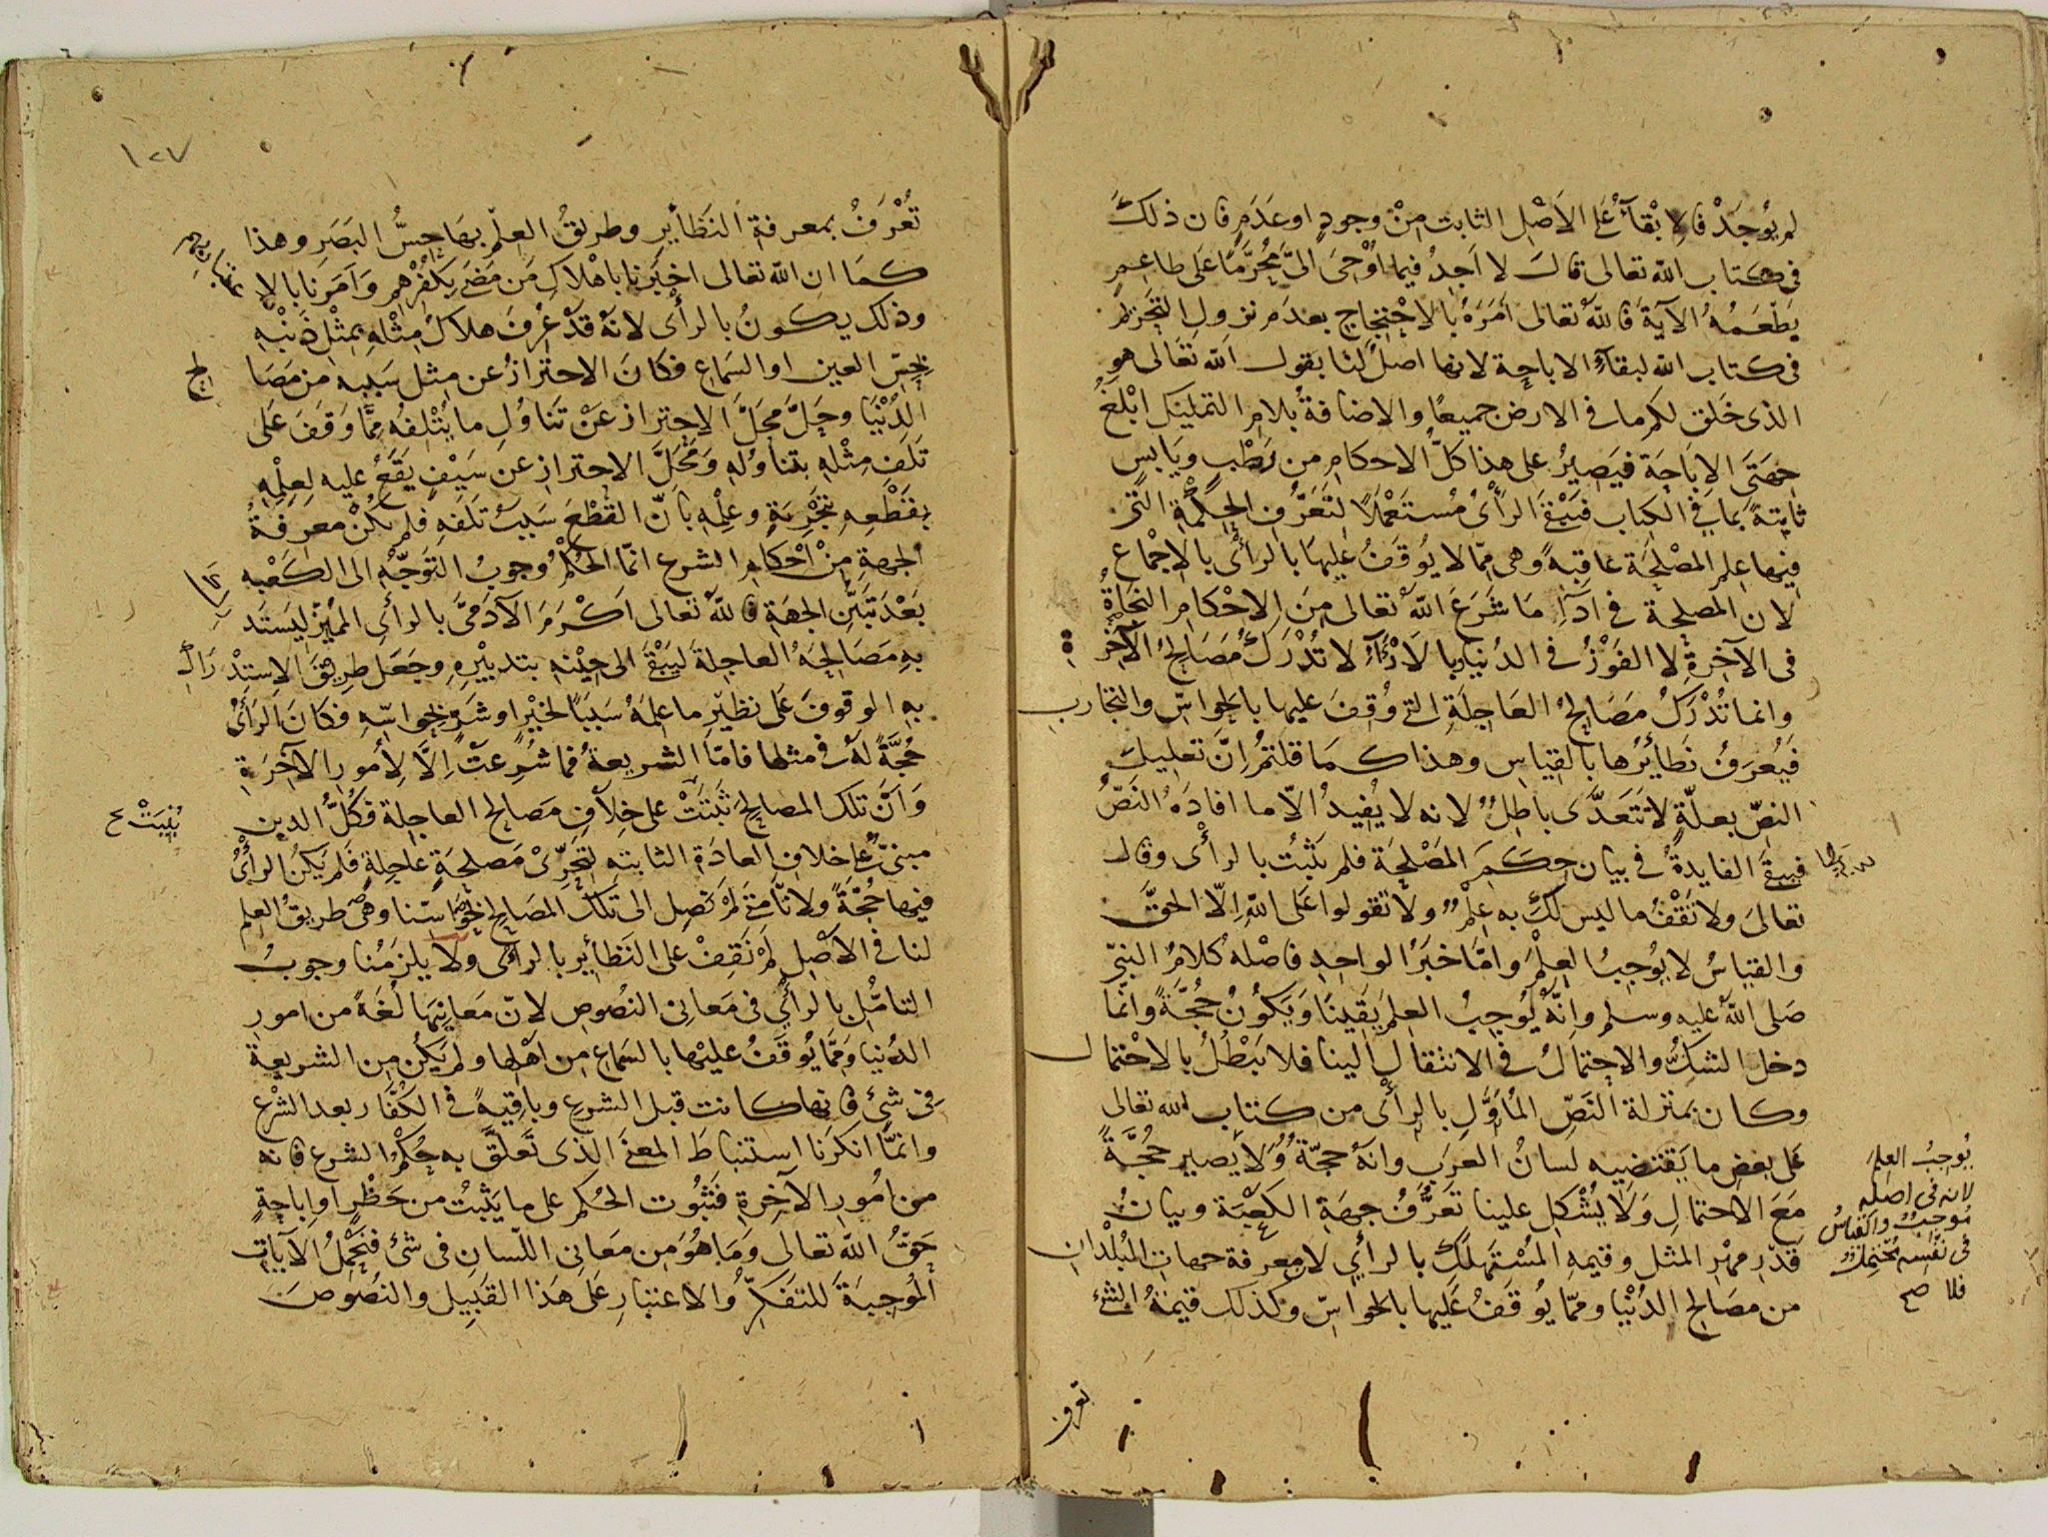 لم يُوجَدْ فالاِبْقآءُ عَلَى الاَصْلِ الثابت مِنْ وجودٍ او عَدَمٍ فان ذلكَ
فى كتاب اللّه تعالى قالَ لا اَجِدُ فيما اُوْحِىَ الىَّ مُحَرَّمًا عَلَى طاعِمٍ
يَطْعَمُهُ الآيَةَ فاللّهُ تعالى اَمَرَهُ بالاِحْتِجاجِ بعدَم نزولِ التَحْرِيْمِ
فى كتاب اللّه لبقآءِ الاباحة لانها اصلٌ لنا بقول اللّه تعَالى هو
الذى خَلق لكم ما فى الارض جميعًا والاضافةُ بلام التمليك ابْلَغُ
جِهَتَىِ الاِبَاحَة فيَصيرُ على هذا كلُّ الاحكامِ من رَطْبٍ ويَابِسٍ
ثابِتةً بما فى الكتاب فيَبْقَى الرَأْىُ مُستَعْمَلاً لِتَعَرُّفِ الحِكْمَةِ التى
فيها عِلم المصْلحَة عاقِبةً وهى مِمّا لا يُوقَفُ عَليها بالرأْى بالاِجْماع
لان المصلحة فى ادآءِ مَا شَرَعَ اللّهُ تعالى مِنَ الاِحْكامِ النجَاةُ
فى الآخِرَةِ لا الفَوْزُ فى الدُنيا وبالآرآءِ لا تُدْرَكُ مَصَالِحُ الآخِرة
وانما تُدْرَكُ مَصَالِحُ العَاجِلَةِ التى وُقِفَ عليها بالحواسّ والتجارب
فَيُعْرَفُ نَظَائرُها بالقِيَاسِ وهذا كمَا قلتمْ اِنَّ تعليلَ
النصّ بعلّةٍ لا تَتَعَدَّى باطِلٌ لانه لا يُفيدُ الاّ ما افادَهُ النَصُّ
فيبقَى الفايدةُ فى بيان حِكَمِ المَصْلِحَة فلم يَثبُتْ بالرأْى وقال
تعالى ولا تَقْفُ ما ليس لكَ به عِلْمٌ ولا تقولوا عَلَى اللّه اِلاّ الحَقَّ
والقياسُ لا يُوجِبُ العِلْمَ وامّا خبَرُ الواحِدِ فاصْلهُ كلامُ النبىّ
صَلى اللّهُ عليه وسلم وانَّهُ يُوجِبُ العِلمَ يَقِينًا ويَكُونُ حُجَّةً وانّما
دخل الشكُّ والاِحتِمالُ فى الانتقالِ الينا فلا يَبْطُلُ بالاحْتمال
وكان بمنزلة النَصّ المُأَوَّلِ بالرأْى من كتاب اللّه تعالى
عَلى بعضِ ما يَقتضِيه لسانُ العرَب وانّهُ حجّةٌ وَلاَ يَصير حُجَّةً
مَعَ الاحتمالِ وَلا يُشْكِل علينا تَعَرُّفُ جِهَةِ الكَعْبَة وبيانُ
قَدْرِ مَهْرِ المثل وقيمةِ المُسْتَهلَكِ بالرأْي لان معرفة جهاتِ البُلْدانِ
من مصَالح الدُنْيا وممّا يُوقَفُ عَلَيها بالحواسّ وكذلك قيمةُ الشئ
يُوجِبُ العِلمَ
لانه فى اصله
مُوجِبٌ والقياسُ
فى نفْسِه مُحْتمِلٌ
فلا صح
تعرف
١٠٧
تُعْرَفُ بمعرفةِ النَظَائِرِ وطريقُ العِلمِ بهَا حِسُّ البَصَرِ وهذا
كمَا ان اللّه تعالى اخبَرَنا باهْلاكِ مَن مَضَى بِكُفْرِهِم وَاَمَرَنا بالاِعْتبار
وذلك يكونُ بالرأْى لانهُ قَدْ عُرِفَ هلاكُ مِثْلِهِ بمِثْلِ ذَنْبِهِ
بحِسّ العين او السَماع فكانَ الاحتِرازُ عن مِثل سَببِه من مَصَالح
الدُنْيا وحَلَّ مَحَلَّ الاِحترازِ عَنْ تَناوُلِ ما يُتْلِفُهُ مِمّا وَقَفَ عَلَى
تَلَفِ مِثْلِهِ بتناوُلِهِ وَمَحَلَّ الاحترازِ عن سَيْفٍ يَقَعُ عليه لعِلْمِهِ
بقَطْعِهِ تَجْرِبَةً وعِلْمِهِ بأنّ القَطْعَ سَبَبُ تَلَفِهِ فلم يكُنْ معرفةُ
الجِهةِ مِنْ اَحْكامِ الشرع انّما الحُكْمُ وُجوبُ التَوَجُّهِ الى الكَعْبة
بَعْدَ تَبَيُّنِ الجهَةِ فاللّهُ تعالى اَكْرَمَ الآدَمىَّ بالرأْىِ المُمَيِّزِ ليَسْتَدْرِك
بهِ مَصَالحَهُ العاجِلةَ ليَبْقَى الى حِيْنِه بتدبيْرِهِ وجَعَل طرِيقَ الاِستِدْراكِ
به الوقوفَ عَلَى نظيْرِ ما عِلمَهُ سَبَبًا لخيْرٍ او شَرٍّ بحواسِّهِ فكَانَ الرَأْىُ
حُجَّةً لهُ فى مثلها فامّا الشريعةُ فما شُرِعتْ اِلاَّ لِأُمورِ الآخِرَةِ
وَاَنَّ تلك المصالحَ ثَبَتَتْ على خِلافِ مَصَالح العاجِلة فكُلُّ الدين
بُنِيَتْ ح
مبنىٌّ عَلَى خلافِ العادَةِ الثابتة لِتَحَرِّىْ مَصلحَةٍ عاجِلةٍ فَلم يَكُنِ الرأْىُ
فيها حُجَّةً ولانّا متى لم نَصِلْ الى تلكَ المصَالح بحَواسّنا وهى طريقُ العِلم
لنا فى الاَصْلِ لم نَقِفْ على النَظَائِرِ بالرأْى ولا يلزمُنا وجوبُ
التامُّلِ بالرأْيِ فى مَعانى النُصُوصِ لانّ مَعانيَها لُغَةً من امورِ
الدُنيا ومَمّا يُوقَفُ عليْها بالسَماع من اَهْلِها ولم يَكُن مِن الشريعةِ
فى شئ فانها كانت قبل الشرعِ وباقِيةً فى الكفّار بعد الشرْع
وانّما انكرْنا استنباطَ المعنَى الذى تَعلّقَ به حُكمُ الشرع فانه
من امُورِ الآخِرةِ فثبُوت الحُكم على ما يَثبتُ من حَظْرٍ او اِباحةٍ
حَقُّ اللّه تعالى وَمَا هُوَ من معَانى اللّسان فى شئ فنَحْمِلُ الآياتِ
المُوجِبَةَ للتفَكُّرِ والاعتبارِ عَلَى هَذا القَبِيلِ والنُصُوصَ